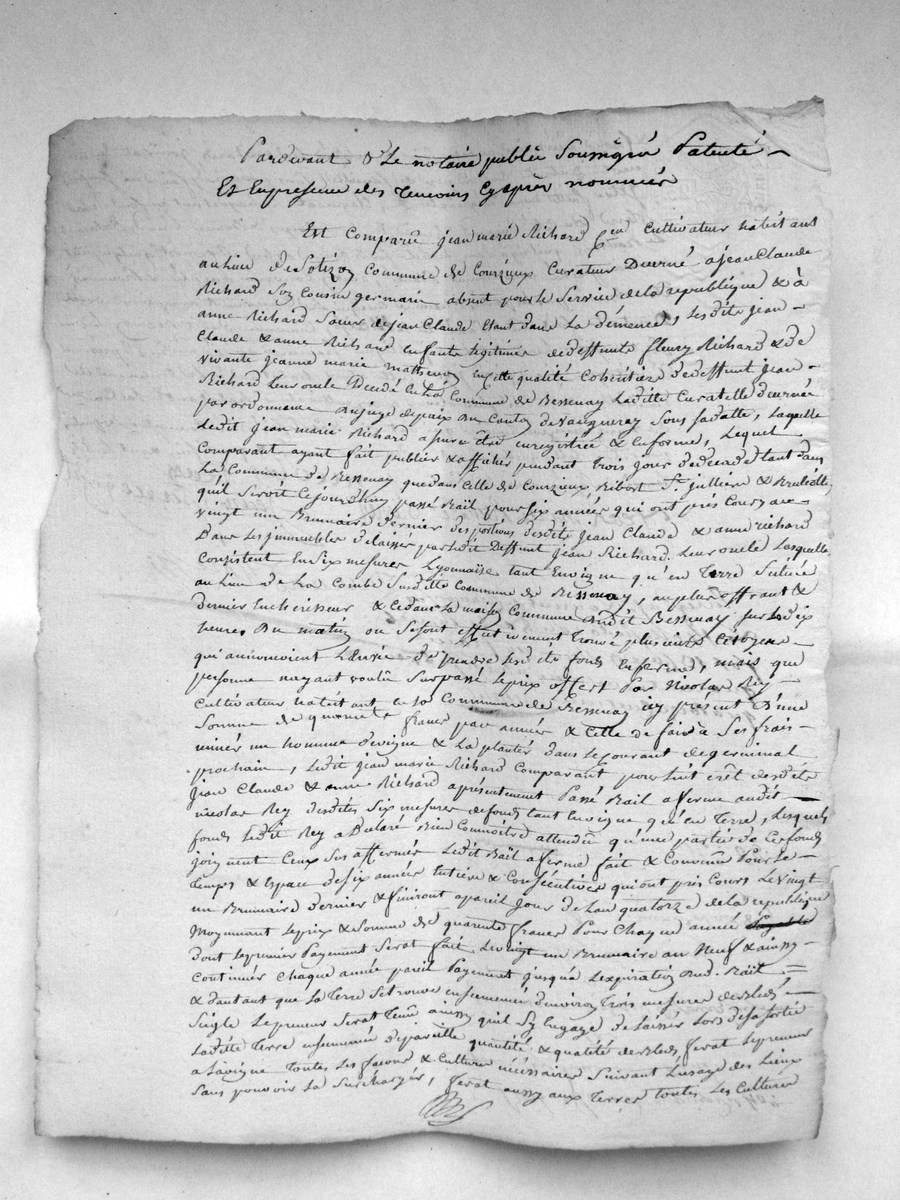 Pardevant Le notaire public Soussigné Patenté
Et En presence des temoins Cy apres nommés
Est Comparu jean marie Richard Cen Cultivateur habitant
au lieu de Solizoy Commune de Courzieux Curateur Decerné a jean Claude
Richard Son Cousin germain absent pour le Service de la republique & à
anne Richard Soeur de jean Claude Etant dans La démence, Lesdits jean
Claude & anne Richard enfants légitimes de deffunts fleury Richard & de
vivante jeanne marie mathevon en cette qualité Cohéritiers de deffunt jean
Richard Leur oncle Décédé en La Commune de Bessenay Ladite Curatelle decernée
par ordonnance du juge de paix du Canton de Vaugneray Sous sa datte, Laquelle
Ledit jean marie Richard assure être enregistrée & En forme, Lequel
Comparant ayant fait publier & afficher pendant trois jours de decade tant dans
La Commune de Bessenay que dans Celle de Courzieux Ribost St julliere & Brulliolle
qu'il Seroit Cejourd'huy passé Bail pour six années qui ont pris Cours au
vingt un Brumaire dernier des portions desdits jean Claude & anne Richard
Dans Les immeubles délaissés par Ledit Deffunt jean Richard Leur oncle Lesquelles
Consistent En Six mesures Lyonnaise tant En vigne qu'en Terre Située
au lieu de La Combe Susditte Commune de Bessenay, au plus offrant &
dernier Encherisseur & Ce dans La maison Commune dudit Bessenay Sur Les dix
heures du matin ou Se sont effectivement Trouvé plusieurs Citoyens
qui annoncoient L'envie de prendre Lesdits fonds En ferme, mais que
personne nayant voulû Surpassé Le prix offert Par Nicolas Rey
Cultivateur habitant en La Commune de Bessenay icy présent D'une
Somme de quarante francs par année & Celle de faire à Ses frais
miner un hommée de vigne & La planter dans Le Courant de germinal
prochain, Ledit jean marie Richard Comparant pour Lesdits
jean Claude & anne Richard a présentement Passé Bail a ferme audit
nicolas Rey desdites Six mesures de fonds tant En vigne qu'en Terre, Lesquels
fonds Ledit Rey a Declaré Bien Connoitre attendû qu'une partie de Ces fonds
joignent Ceux Ses affermés Ledit Bail a ferme fait & Convenu Pour Le
Temps & Espace de six années entiere & Consécutives qui ont pris Cours Le vingt
un Brumaire dernier & finiront a pareil jour de L'an quatorze de la republique
Moyennant Le prix & Somme de quarante francs Pour Chaque année payable
dont Le premier Payement Serat fait Le vingt un Brumaire an Neuf & ainsy
Continuer Chaque année pareil Payement jusqu'à L'expiration dud. Bail
& d'autant que La Terre Se trouve ensemencée d'environ Trois mesures de Bled
Seigle Le preneur Serat Tenû ainsy qu'il S'y Engage de Laisser Lors de sa sortie
Ladite Terre ensemencée de pareille quantité & qualité de Bled, ferat Le preneur
a La vigne Toutes Les façons & Cultures nécéssaires Suivant L'usage des Lieux
Sans pouvoir La Surcharger, ferat aussy aux Terres toutes Les Cultures